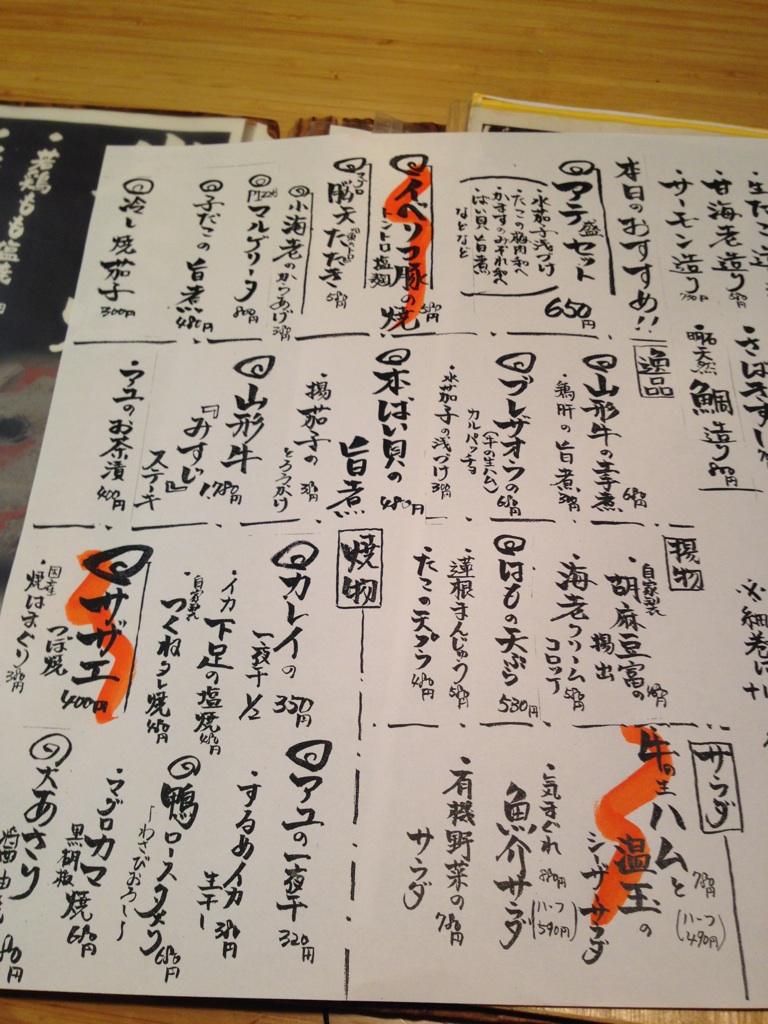 生だこ造り
甘海老造り
サーモン造り
鯛造り
明石天然
本日のおすすめ!!
アテ盛セット
650円
・水茄子浅づけ
・たこの梅肉和へ
・かますのみぞれ和へ
・ばい貝旨煮
などなど
イベリコ豚の焼
トントロ塩麹
マグロ
脳天たたき
小海老のからあげ
マルゲリータ
子だこの旨煮
冷し焼茄子
300円
逸品
山形牛の辛煮
・鶏肝の旨煮
ブレザオラの
(牛の生ハム)
カルパッチョ
・水茄子の浅づけ
本ばい貝の
旨煮
・揚茄子の
とろろかけ
山形牛
『みすじ』
ステーキ
・アユのお茶漬
揚物
自家製
胡麻豆富の
揚出
・海老クリーム
コロッケ
はもの天ぷら
530円
・蓮根まんじゅう
・たこの天プラ
焼物
カレイの
一夜干 1/2
350円
・イカ下足の塩焼
自家製
つくねタレ焼
サザエ
つぼ焼
400円
国産
焼はまぐり
アユの一夜干
320円
・するめイカ
生干し
鴨ロースタタキ
〜わさびおろし〜
・マグロカマ
黒胡椒焼
大あさり
サラダ
牛の生ハムと
温玉の
シーザーサラダ
(ハーフ490円)
・気まぐれ
魚介サラダ
(ハーフ590円)
・有機野菜の
サラダ
・若鶏もも塩焼